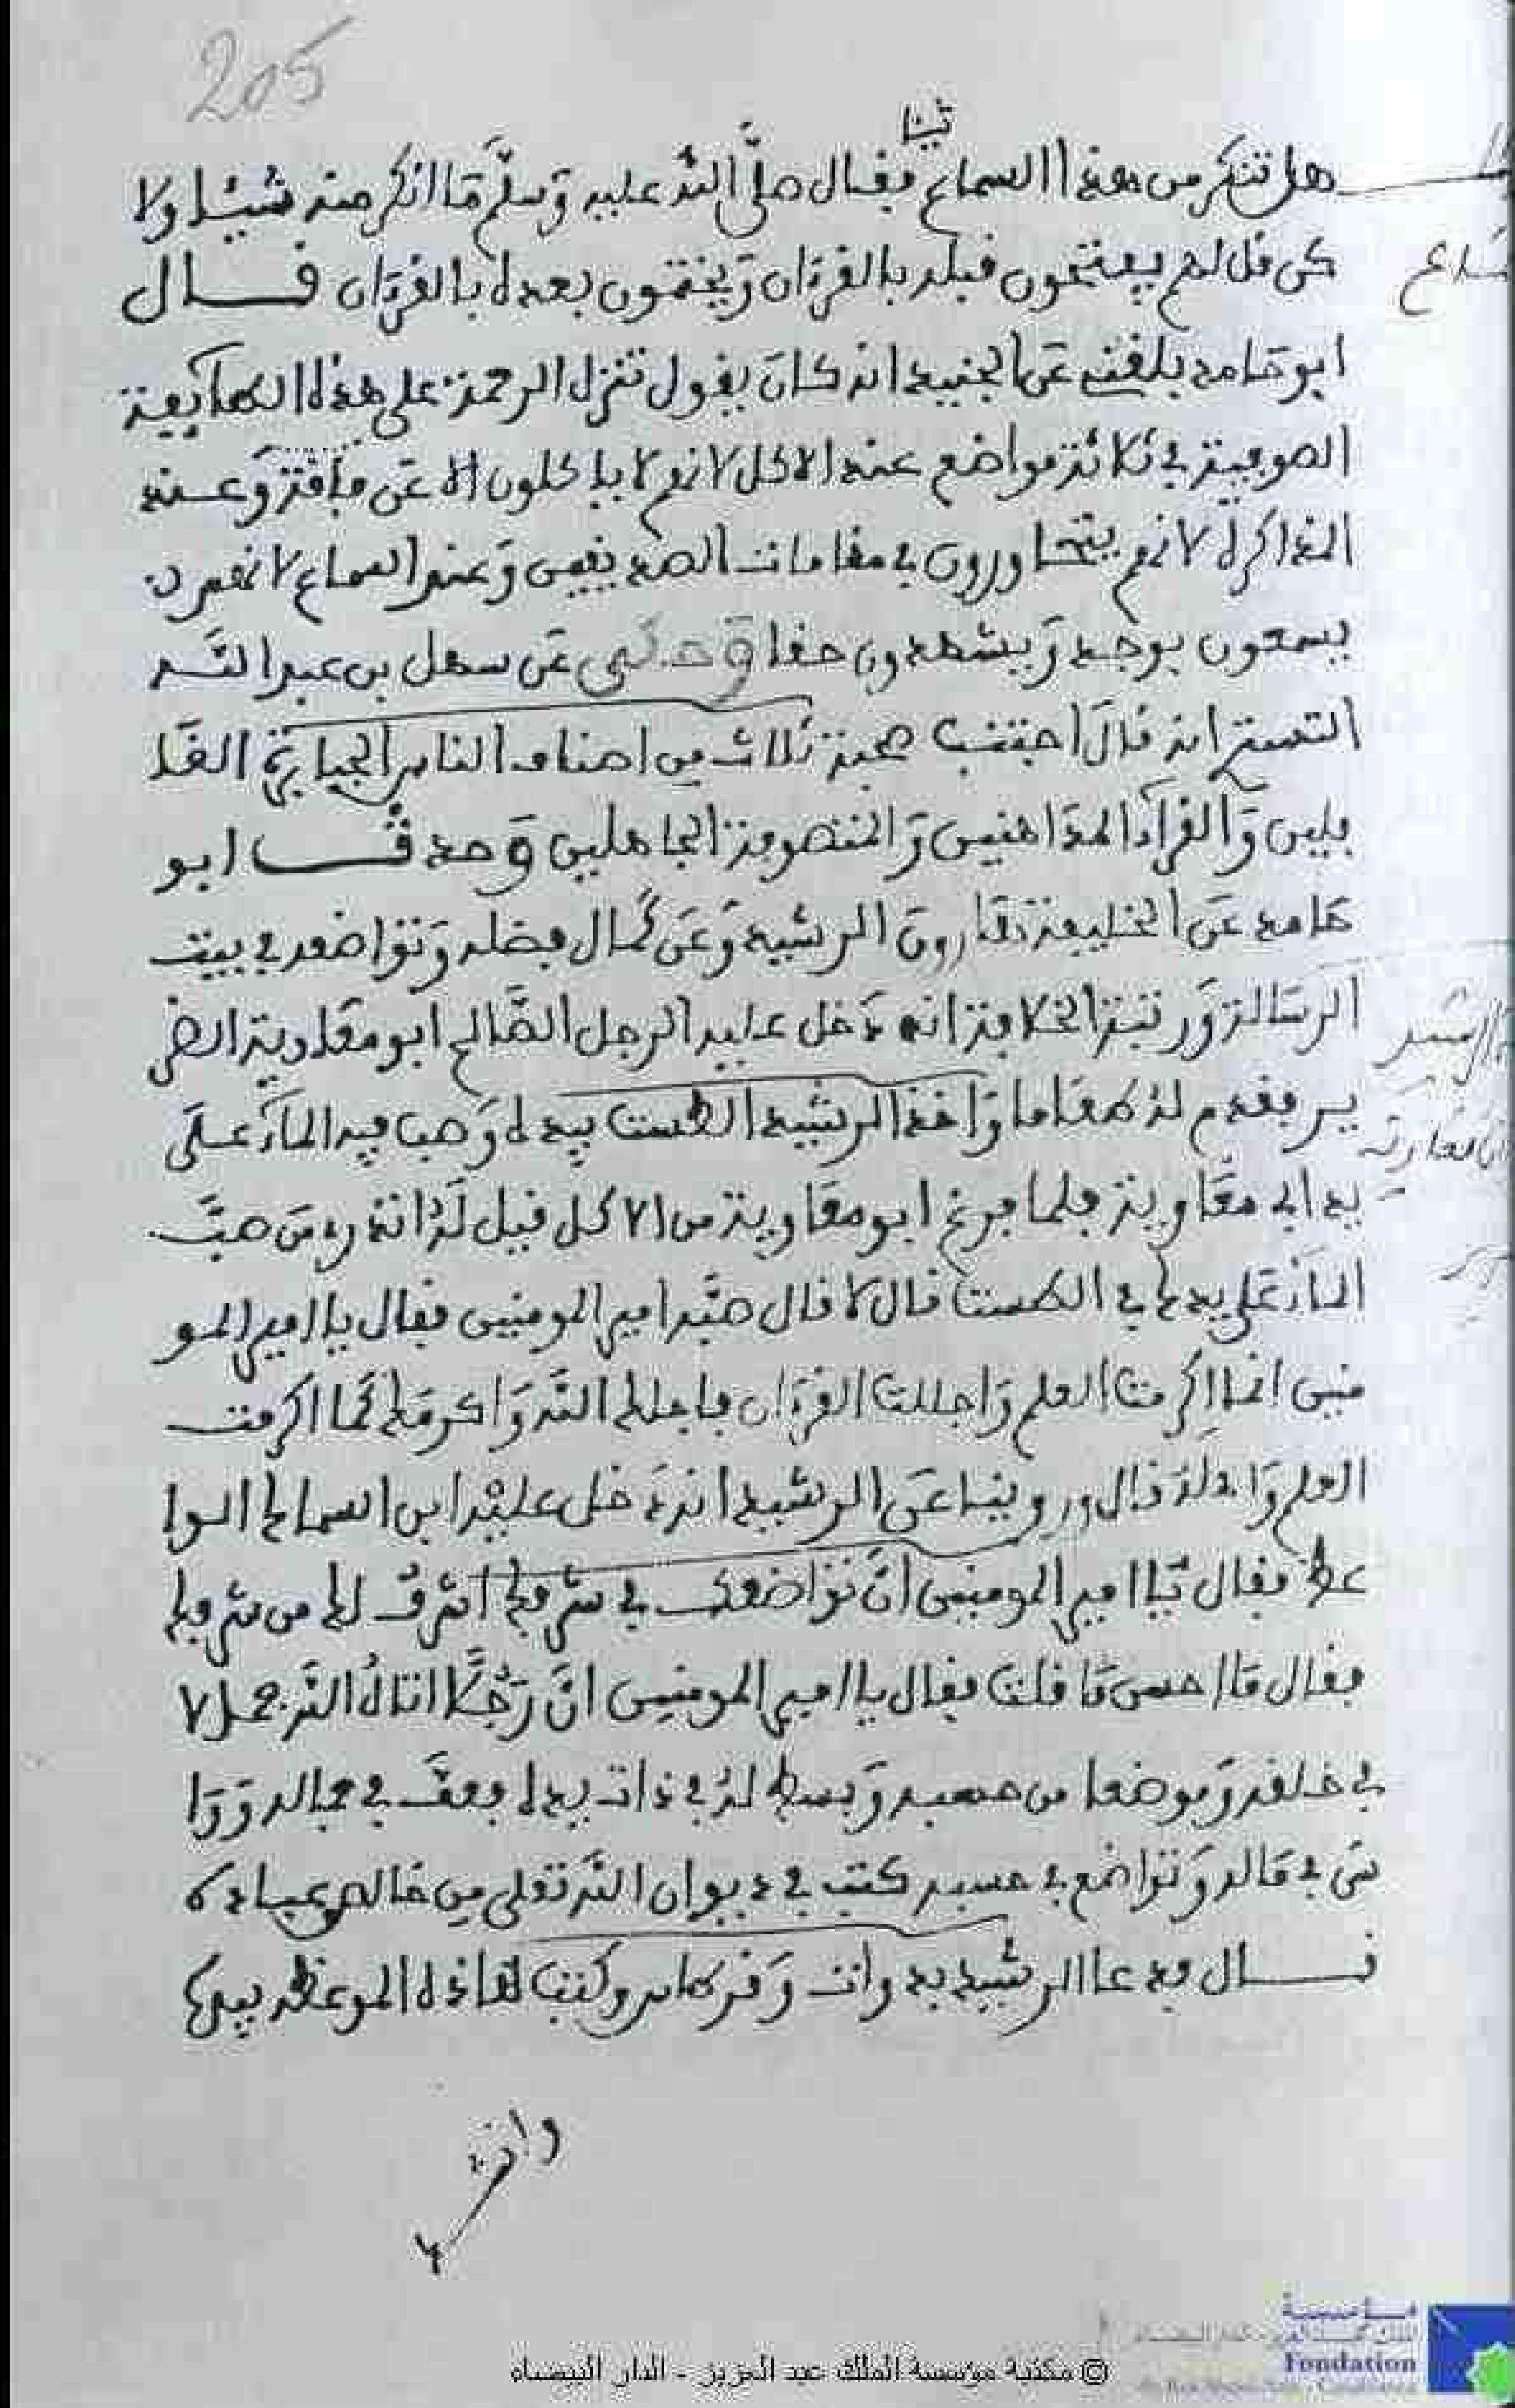 205
شيئا
هل تنكر من هذا السماع فقال صلى الله عليه وسلم ما انكر منه شيئا ولا
كن قل لهم يفتتحون قبله بالقرءان ويختمون بعده بالقرءان قال
ابو حامد بلغني عن الجنيد انه كان يقول تنزل الرحمة على هذه الطايفة
الصوفية في ثلاثة مواضع عند الاكل لانهم لا ياكلون الا عن فاقة وعند
المذاكرة لانهم يتحاورون في مقامات الصديقين وعند السماع لانهم
يسمعون بوجد ويشهدون حقا وحكى عن سهل بن عبد الله
التستري انه قال اجتنب صحبة ثلاث من اصناف الناس الجبابرة الغا
فلين والقراء المداهنين والمتصوفة الجاهلين وحدث ابو
حامد عن الخليفة هارون الرشيد وعن كمال فضله وتواضعه في بيت
الرسالة ورتبة الخلافة انه دخل عليه الرجل الصالح ابو معاوية الضر
ير فقدم له طعاما واخذ الرشيد الطست بيده وصب فيه الماء على
يد ابي معاوية فلما فرغ ابو معاوية من الاكل قيل له اتدري من صب
الماء على يدك في الطست قال لا قال صبه امير المومنين فقال يا امير المو
منين انما اكرمت العلم واجللت القرءان فاجلك الله واكرمك كما اكرمت
العلم واهله قال وروينا عن الرشيد انه دخل عليه ابن السماك الوا
عظ فقال يا امير المومنين ان تواضعك في شرفك اشرف لك من شرفك
فقال ما احسن ما قلت فقال يا امير المومنين ان رجلا اتاه الله جمالا
في خلقه وموضعا من حسبه وبسط له في ذات يده فعف في جماله وو ا
سى في ماله وتواضع في حسبه كتب في ديوان الله تعلى من خالص عباده
قال فدعا الرشيد بدواة وقرطاس وكتب هذه الموعظة بيده
الرشيد
© مكتبة مؤسسة الملك عبد العزيز - الدار البيضاء
مؤسسة
Fondation